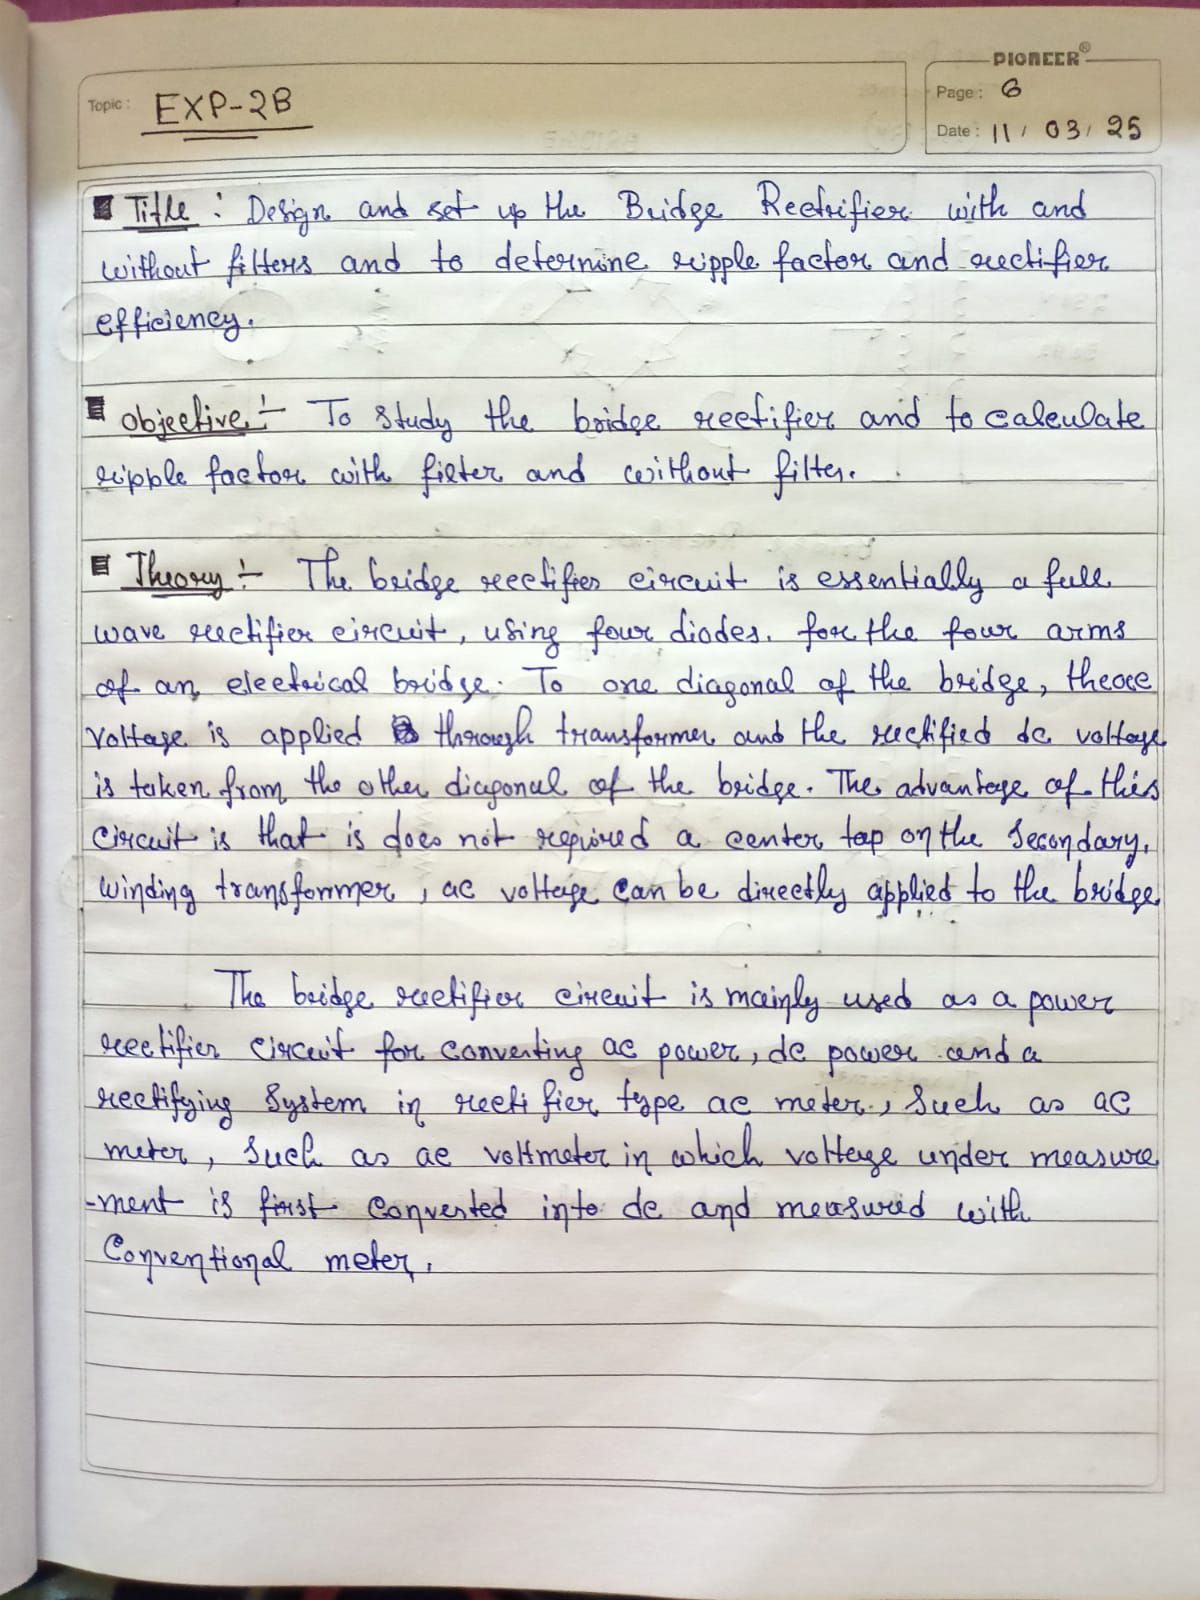 PIONEER®
Topic: EXP-2B
Page: 6
Date: 11/03/25
Title: Design and set up the Bridge Rectifier with and
without filters and to determine ripple factor and rectifier
efficiency.
Objective:- To study the bridge rectifier and to calculate
ripple factor with filter and without filter.
Theory:- The bridge rectifier circuit is essentially a full
wave rectifier circuit, using four diodes. for the four arms
of an electrical bridge. To one diagonal of the bridge, the ac
voltage is applied through transformer and the rectified dc voltage
is taken from the other diagonal of the bridge. The advantage of this
circuit is that is does not required a center tap on the secondary.
winding transformer, ac voltage can be directly applied to the bridge.
The bridge rectifier circuit is mainly used as a power
rectifier circuit for converting ac power, dc power and a
rectifying system in rectifier type ac meter, such as ac
meter, such as ac voltmeter in which voltage under measure
-ment is first converted into dc and measured with
conventional meter.